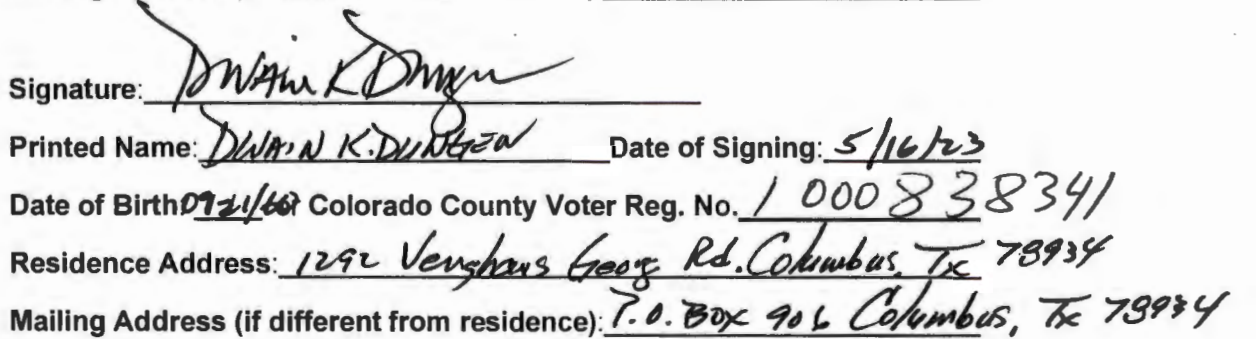 Signature: Dwain K Dungen
Printed Name: DWAIN K. DUNGEN Date of Signing: 5/16/23
Date of Birth: or Colorado County Voter Reg. No. 1000838341
Residence Address: 1292 Venghaus Georg Rd. Columbus, Tx 78934
Mailing Address (if different from residence): P.O. Box 906 Columbus, Tx 78934